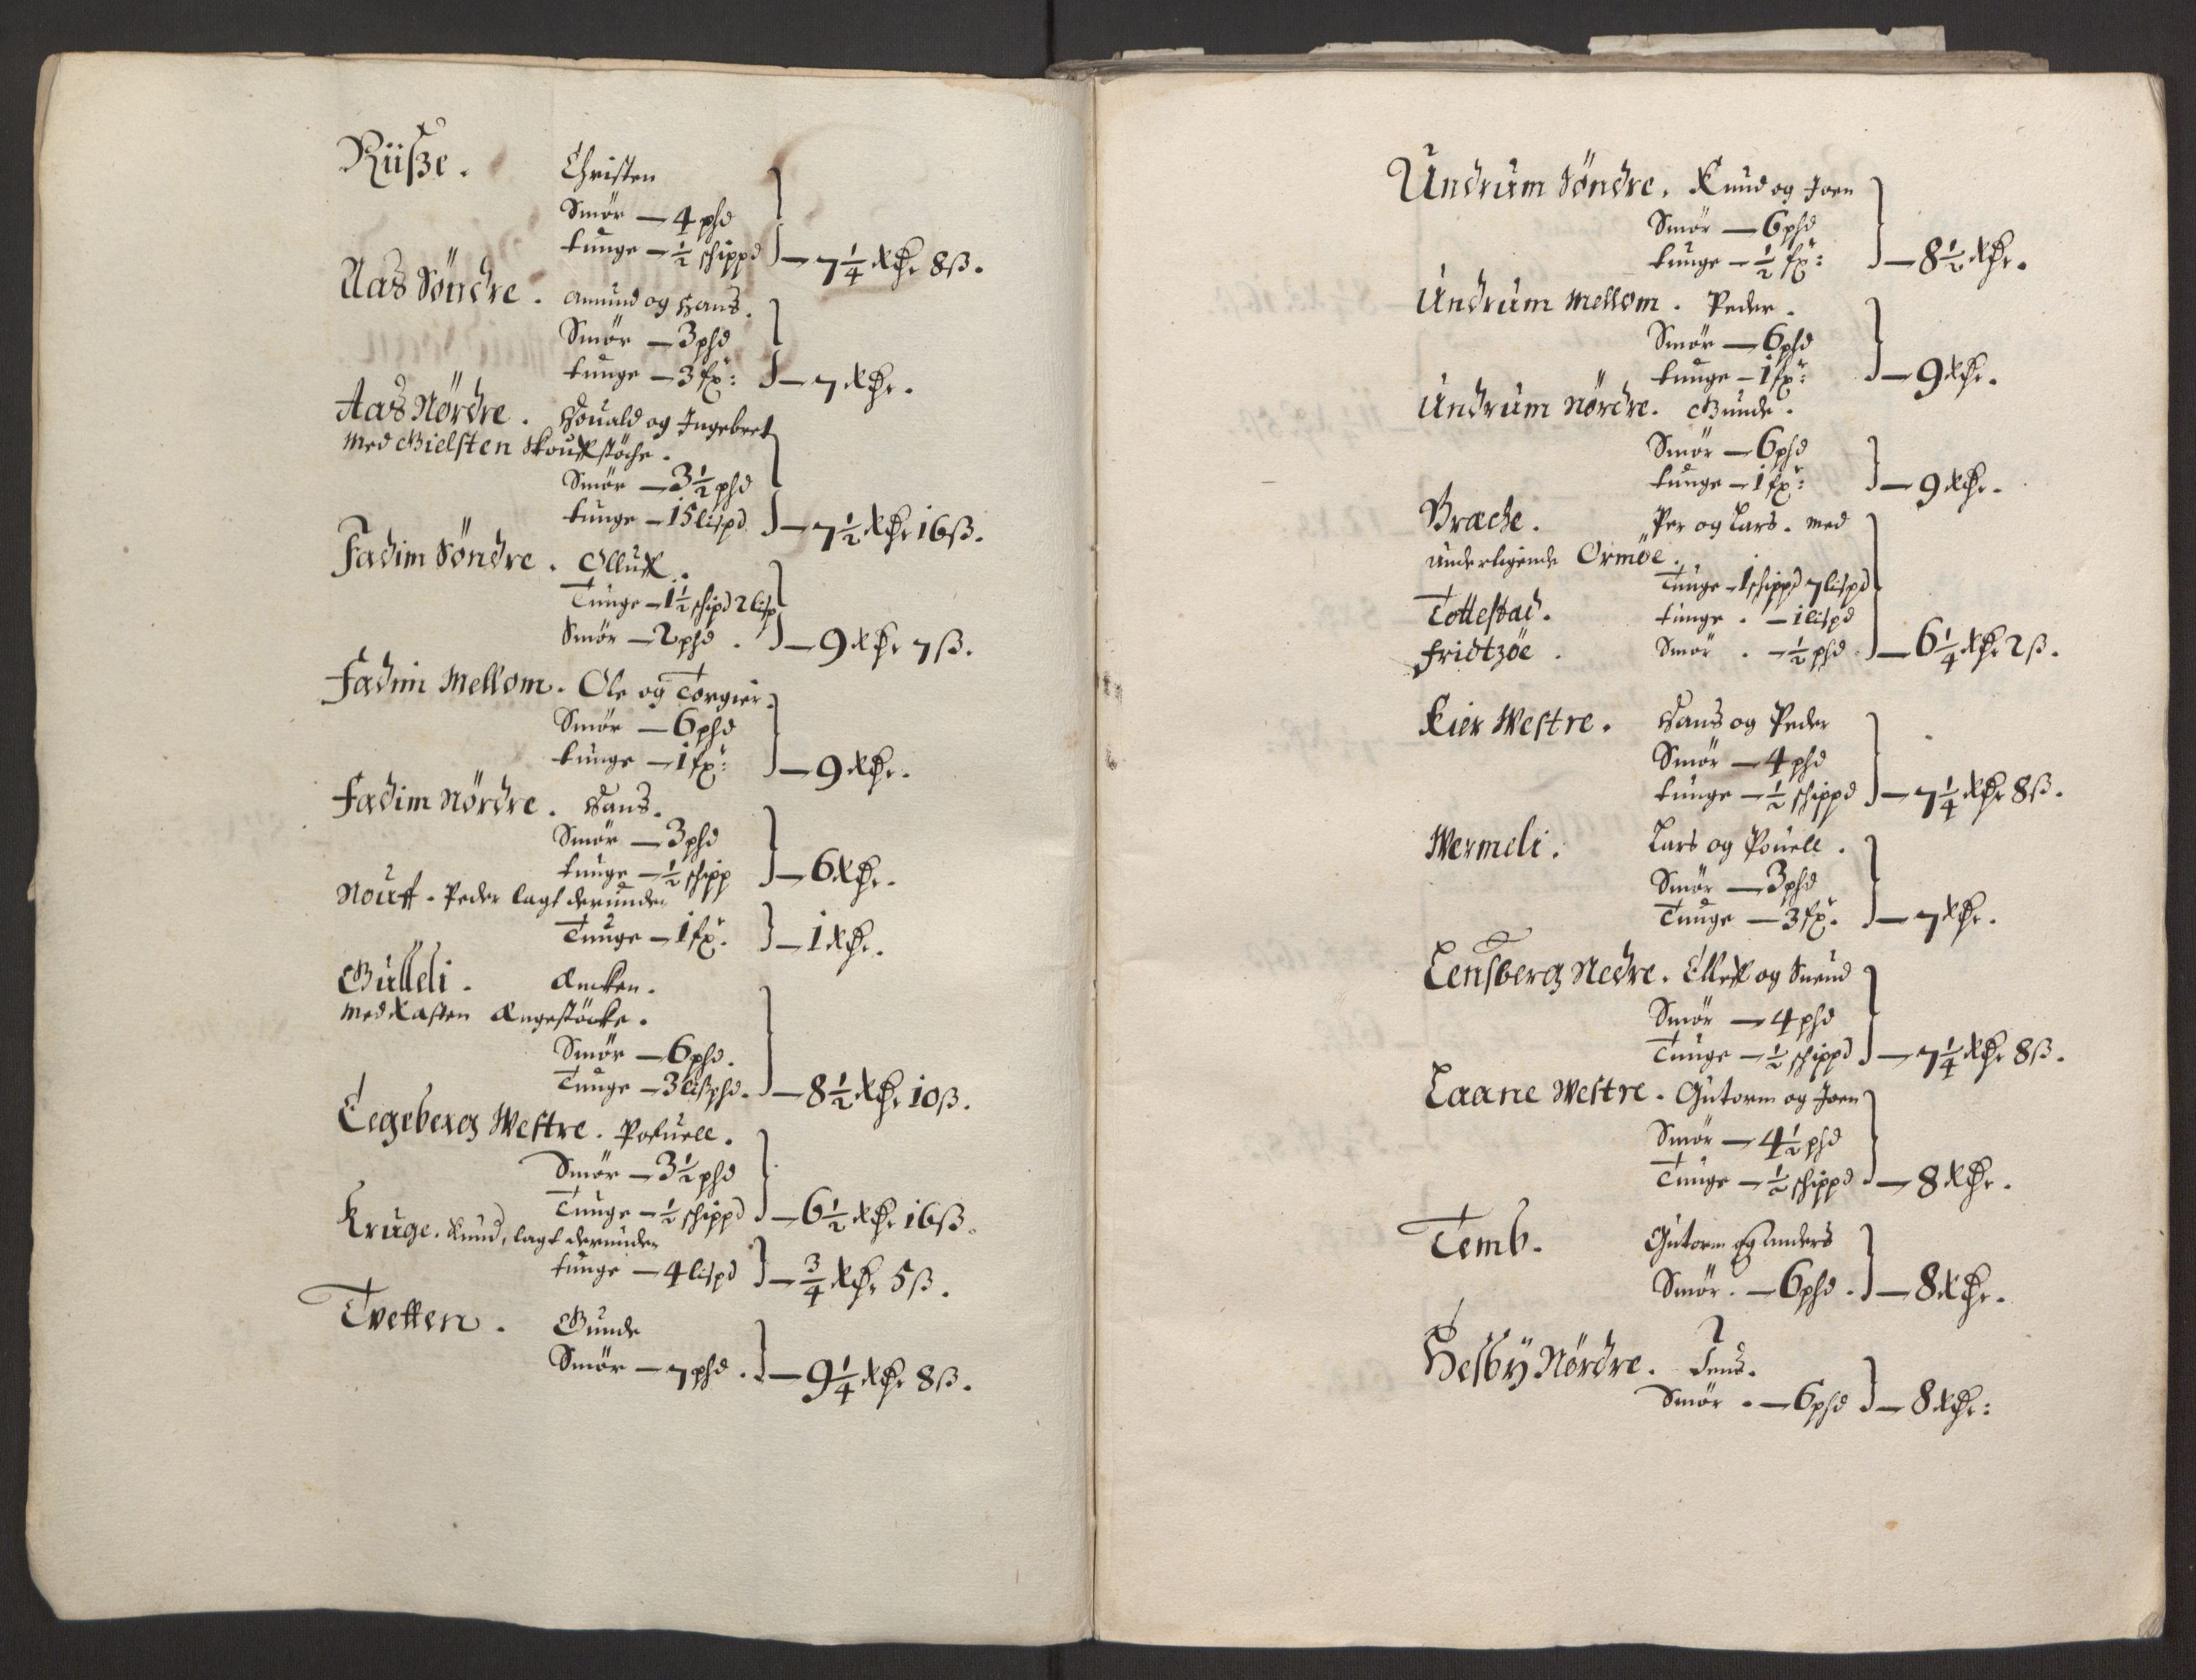 Rüsße. Christen
Smör — 4 phd
tunge — ½ schippd — 7¼ Rthr 8ß.
Aas Söndre. Amund og Hans.
Smör — 3 phd
tunge — 3 fr: — 7 Rthr.
Aas Nördre. Houald og Ingebret
med Gielsten Skoustöche.
Smör — 3½ phd
tunge — 15 lispd — 7½ Rthr 16ß.
Fadim Söndre. Olluff.
Tunge — 1½ schipd 2 lisp
Smör — 2 phd. — 9 Rthr 7ß.
Fadim Mellom. Ole og Torgier.
Smör — 6 phd
tunge — 1 fr: — 9 Rthr.
Fadim Nördre. Hans.
Smör — 3 phd
tunge — ½ schipp — 6 Rthr.
Nouff. Peder lagt derunder
Tunge — 1 fr. — 1 Rthr.
Gulleli. Amken.
med Kasten Engestöcke.
Smör — 6 phd.
Tunge — 3 lisphd. — 8½ Rthr 10ß.
Eegeberg Westre. Pofuell.
Smör — 3½ phd
Tunge — ½ schippd — 6½ Rthr 16ß.
Kruge. Knud, lagt derunder
tunge — 4 lispd — ¾ Rthr 5ß.
Tvetten. Gunde
Smör — 7 phd. — 9¼ Rthr 8ß.
Undrum Söndre. Knud og Joen
Smör — 6 phd
tunge — ½ fr: — 8½ Rthr.
Undrum Mellom. Peder.
Smör — 6 phd
tunge — 1 fr: — 9 Rthr.
Undrum Nördre. Gunde.
Smör — 6 phd
tunge — 1 fr: — 9 Rthr.
Bræche. Per og Lars. med
underligende Ormöe.
Tunge — 1 schippd 7 lispd
Tottestad. tunge. — 1 lispd
Fridtzöe. Smör. — ½ phd. — 6¼ Rthr 2ß.
Kier Westre. Hans og Peder
Smör — 4 phd
tunge — ½ schippd — 7¼ Rthr 8ß.
Wermeli. Lars og Pouell.
Smör — 3 phd
Tunge — 3 fr. — 7 Rthr.
Lensberg Nedre. Elleff og Suend
Smör — 4 phd
Tunge — ½ schippd — 7¼ Rthr 8ß.
Laane Westre. Gutorm og Joen
Smör — 4½ phd
Tunge — ½ schippd — 8 Rthr.
Temb. Gutorm og Anders
Smör. — 6 phd. — 8 Rthr.
Hesbÿ Nördre. Jens.
Smör. — 6 phd — 8 Rthr: